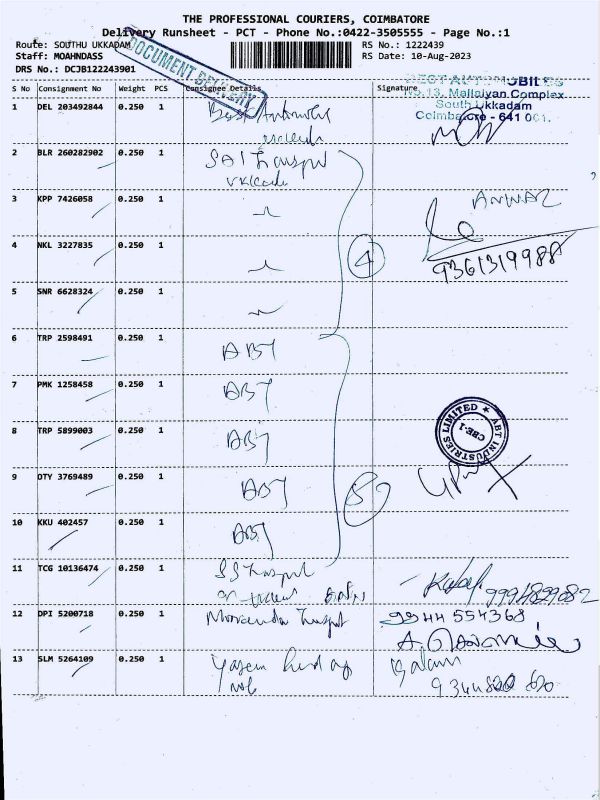 THE PROFESSIONAL COURIERS, COIMBATORE
Delivery Runsheet - PCT - Phone No.:0422-3505555 - Page No.:1
Route: SOUTHU UKKADAM
RS No.: 1222439
Staff: MOAHNDASS
RS Date: 10-Aug-2023
DRS No.: DCJB122243901
DOCUMENT DELIVERY
S No Consignment No Weight PCS Consignee Details Signature
BEST AUTOMOBILES
No.13, Mallaiyan Complex
South Ukkadam
Coimbatore - 641 001.
1 DEL 203492844 0.250 1 Best
2 BLR 260282902 0.250 1 SAI
3 KPP 7426058 0.250 1 ANWAR
4 NKL 3227835 0.250 1 4 9361319988
5 SNR 6628324 0.250 1
6 TRP 2598491 0.250 1 ABT
7 PMK 1258458 0.250 1 ABT
8 TRP 5899003 0.250 1 ABT
ABT INDUSTRIES LIMITED
CBE-1
9 OTY 3769489 0.250 1 ABT 5
10 KKU 402457 0.250 1 ABT
11 TCG 10136474 0.250 1 SS
12 DPI 5200718 0.250 1 9944 554368
13 SLM 5264109 0.250 1 Kalam